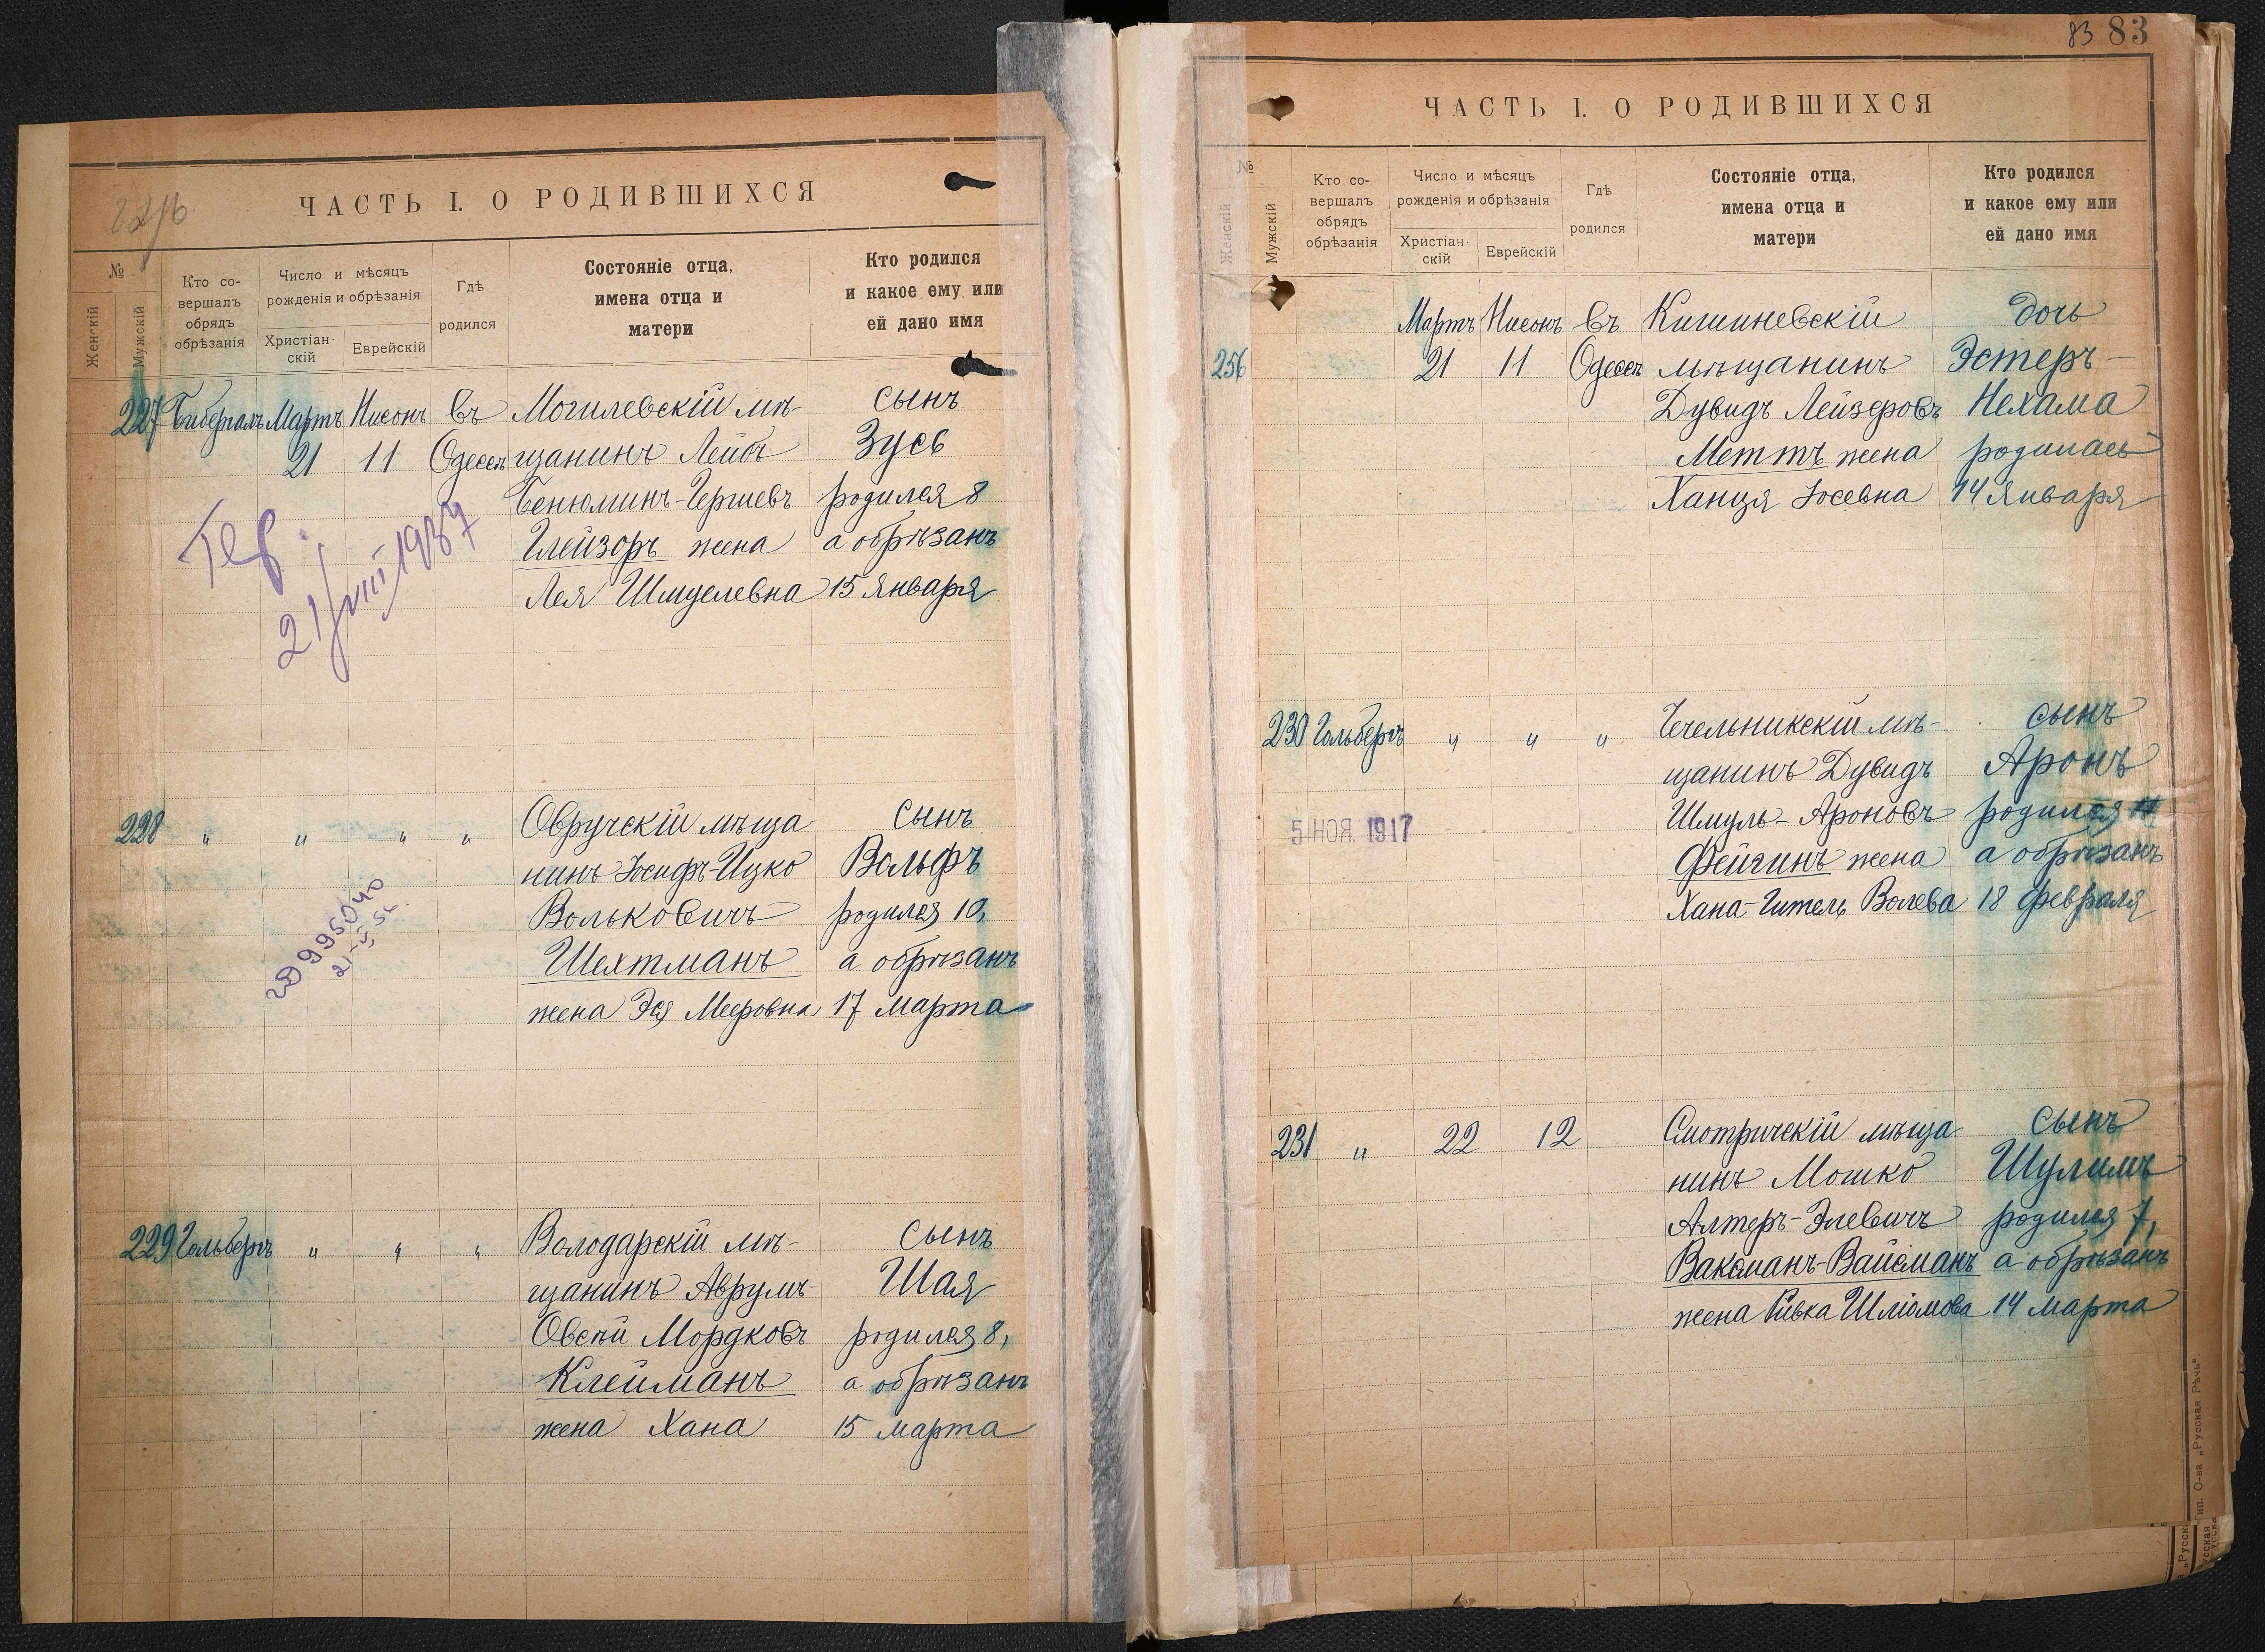 ЧАСТЬ I. О РОДИВШИХСЯ
№
Женскій
Мужскій
Кто со-
вершалъ
обрядъ
обрѣзанія
Число и мѣсяцъ
рожденія и обрѣзанія
Христіан-
скій
Еврейскій
Гдѣ
родился
Состояніе отца,
имена отца и
матери
Кто родился
и какое ему или
ей дано имя
227 Бибергалъ Мартъ Нисонъ въ Могилевскій мѣ- сынъ
21 11 Одессѣ щанинъ Лейбъ Зусь
Бенюминъ-Гершевъ родился 8
Глейзоръ жена а обрѣзанъ
Лея Шмулевна 15 Января
21/VIII 1937
228 " " " " Овручскій мѣща- сынъ
нинъ Іосифъ-Ицко Вольфъ
Вольковичъ родился 10,
Шехтманъ а обрѣзанъ
жена Эся Мееровна 17 марта
995040
229 Гольбергъ " " " Володарскій мѣ- сынъ
щанинъ Аврумъ- Шая
Овсѣй Мордковъ родился 8,
Клейманъ а обрѣзанъ
жена Хана 15 марта
83 83
ЧАСТЬ I. О РОДИВШИХСЯ
№
Женскій
Мужскій
Кто со-
вершалъ
обрядъ
обрѣзанія
Число и мѣсяцъ
рожденія и обрѣзанія
Христіан-
скій
Еврейскій
Гдѣ
родился
Состояніе отца,
имена отца и
матери
Кто родился
и какое ему или
ей дано имя
Мартъ Нисонъ въ Кишиневскій дочь
256 21 11 Одессѣ мѣщанинъ Эстеръ-
Дувидъ Лейзеровъ Нехама
Меттъ жена родилась
Ханця Іосевна 14 Января
230 Гольбергъ " " " Чечельникскій мѣ- сынъ
щанинъ Дувидъ Аронъ
Шмуль-Ароновъ родился 11
Фейгинъ жена а обрѣзанъ
Хана-Гитель Волева 18 февраля
5 НОЯ 1917
231 " 22 12 Смотричскій мѣща- сынъ
нинъ Мошко Шулимъ
Алтеръ-Элевичъ родился 7,
Ваксманъ-Вайсманъ а обрѣзанъ
жена Ривка Шліомова 14 марта
Тип. О-ва „Русская Рѣчь“.